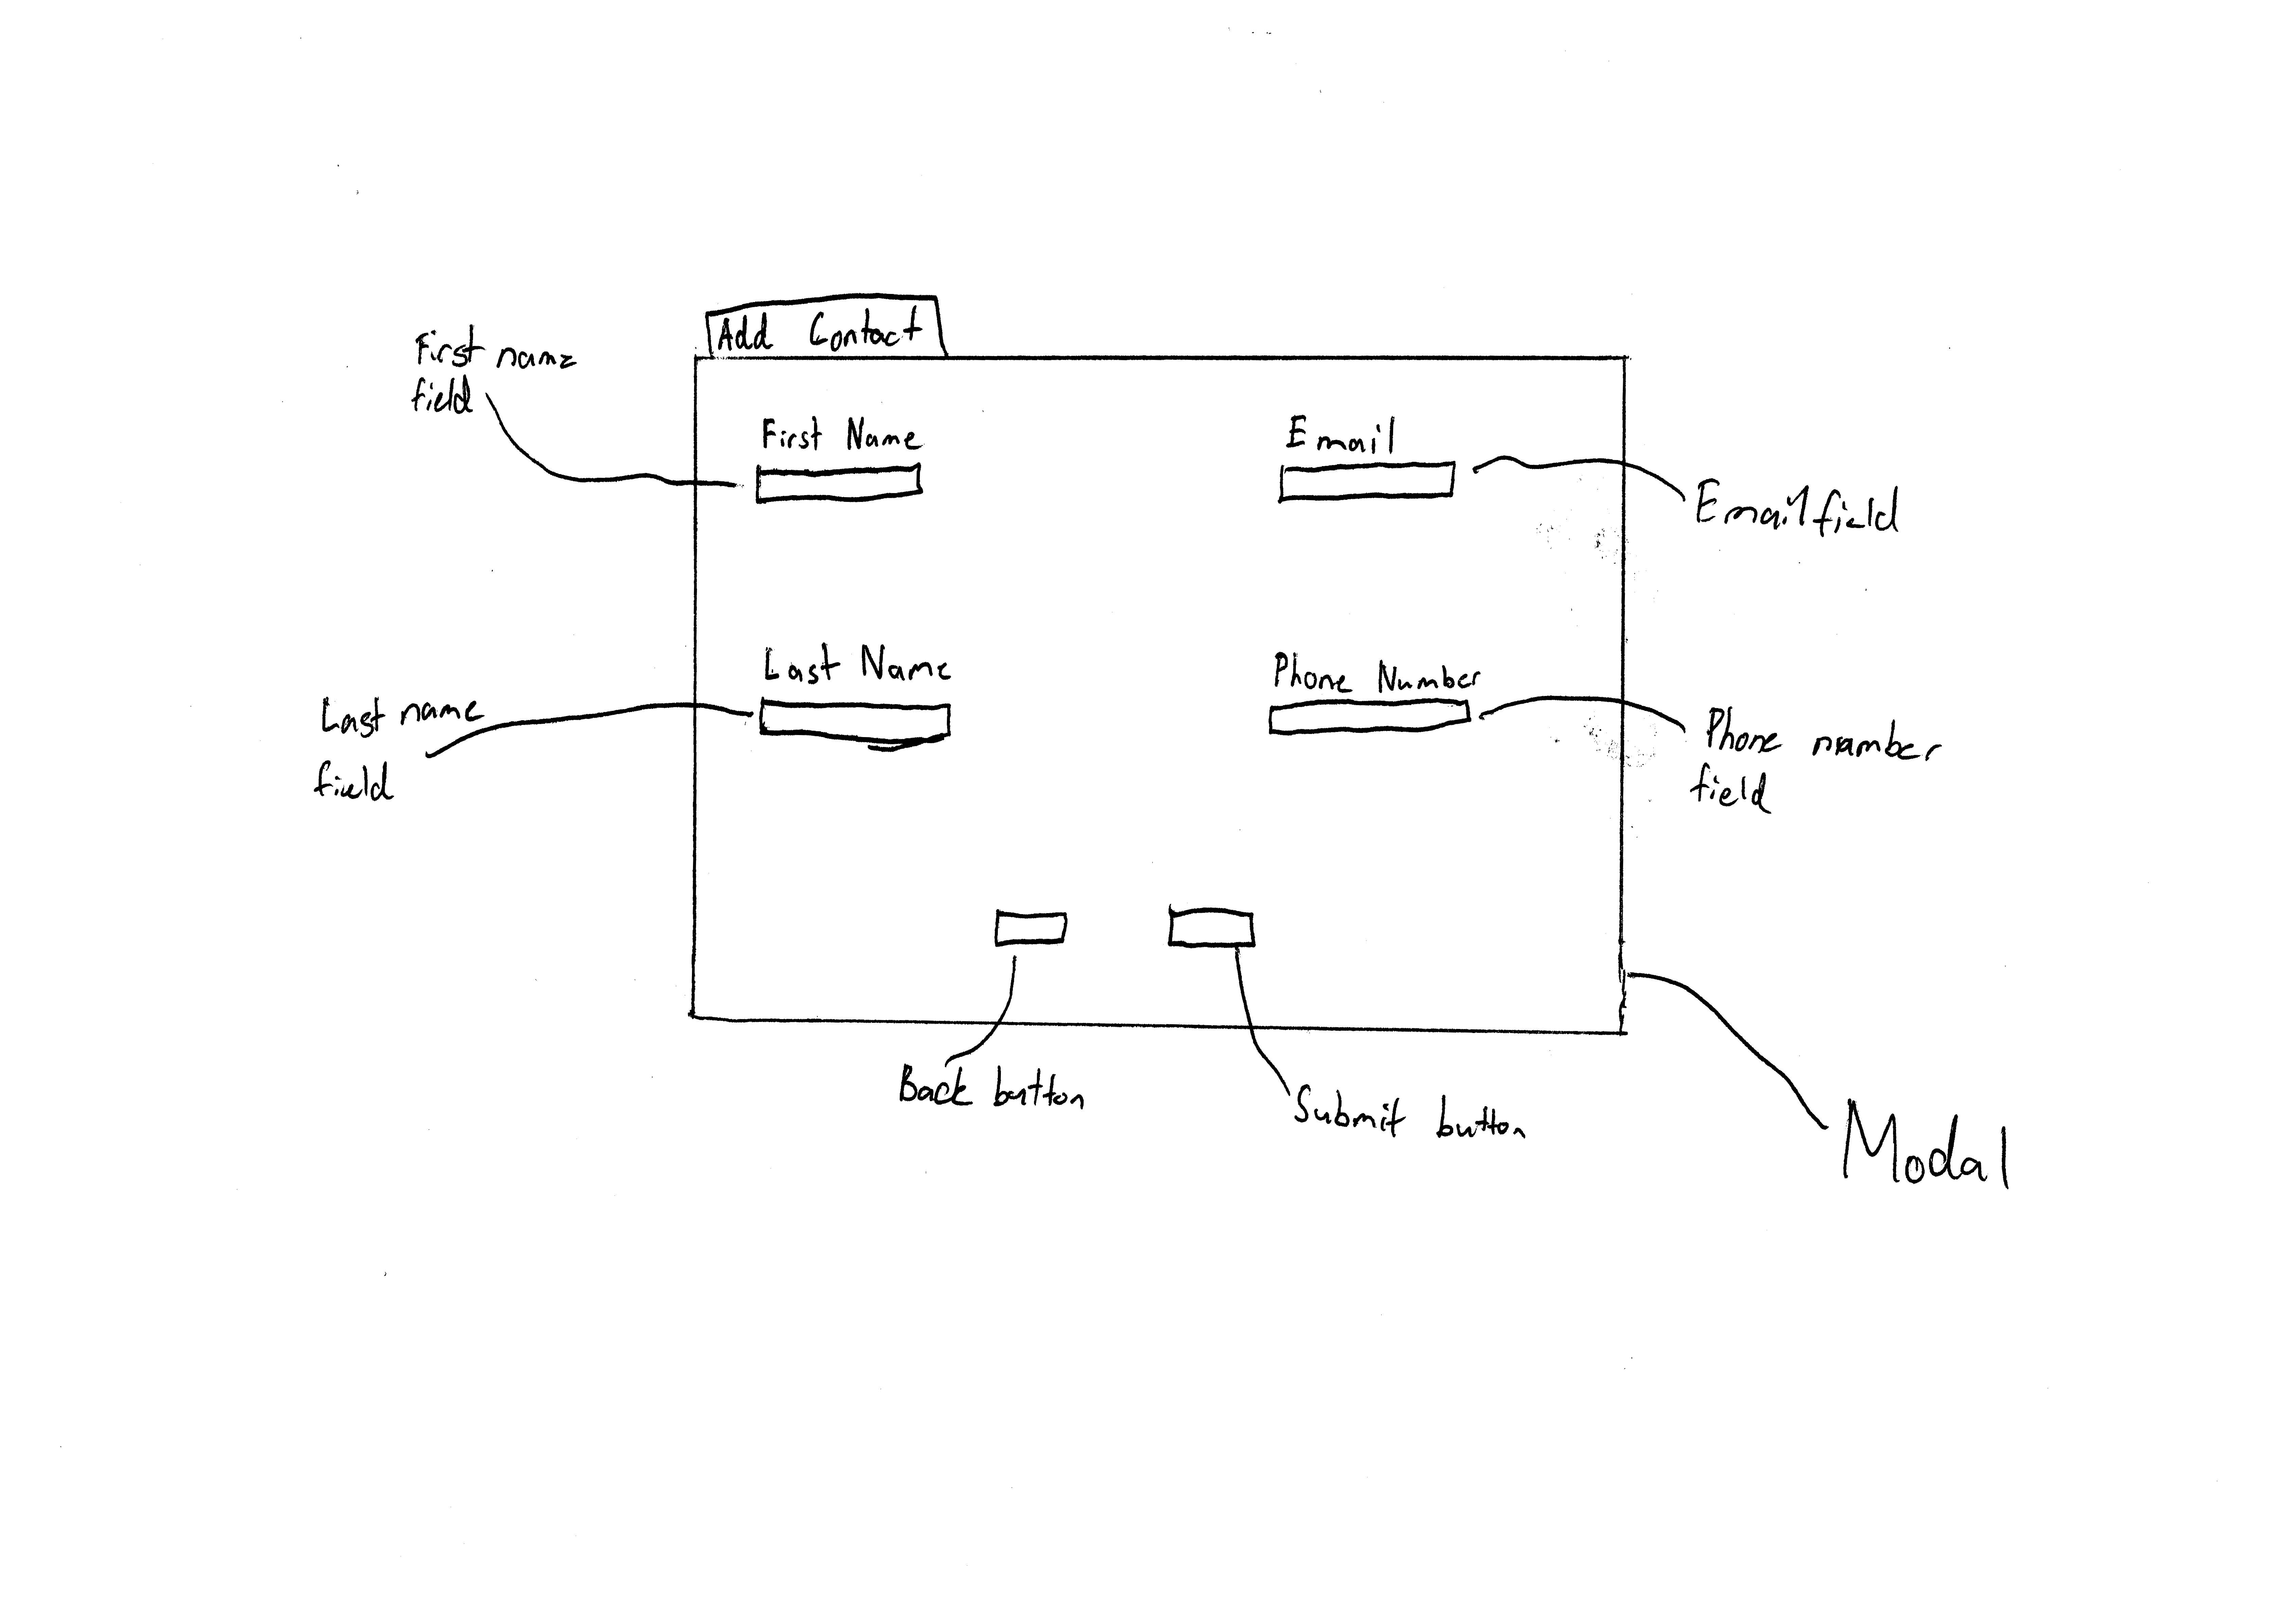 Add Contact
First name
field
First Name
Email
Email field
Last Name
Phone Number
Last name
field
Phone number
field
Back button
Submit button
Modal